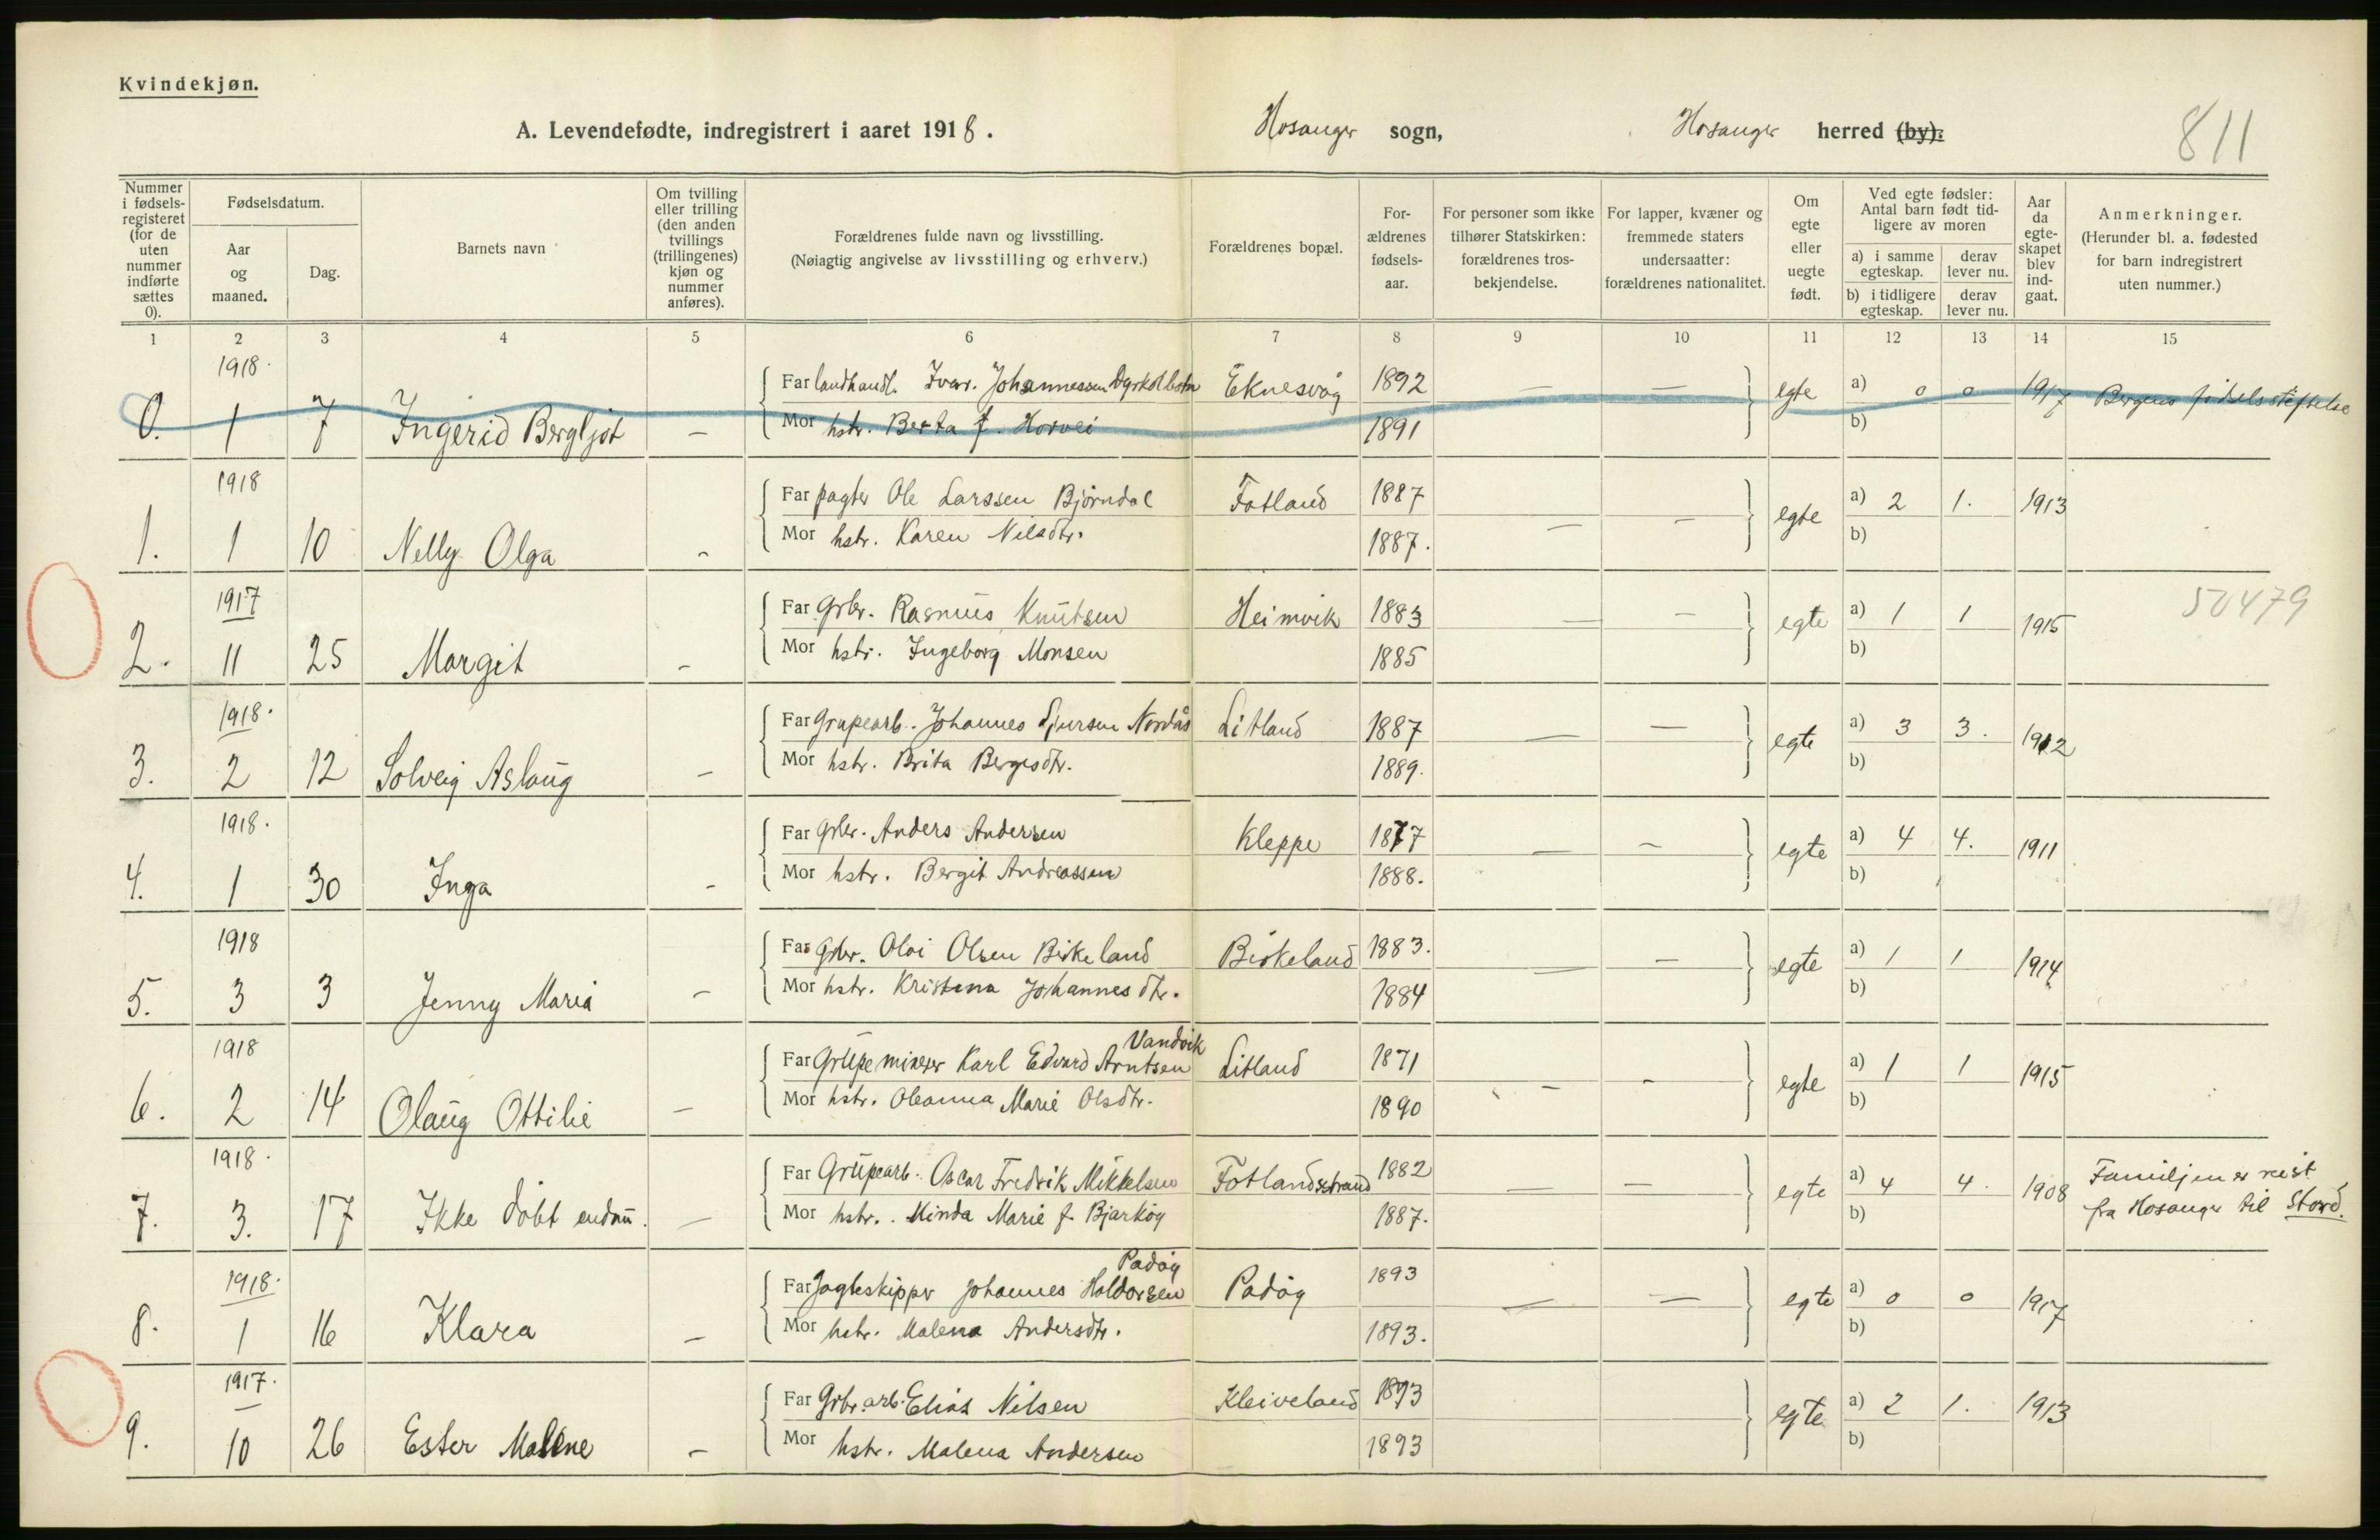 Kvindekjøn.
A. Levendefødte, indregistrert i aaret 1918. Hosanger sogn, Hosanger herred (by).
811
Nummer i fødsels-registeret (for de uten nummer indførte sættes 0).
Fødselsdatum.
Aar og maaned.
Dag.
Barnets navn
Om tvilling eller trilling (den anden tvillings (trillingenes) kjøn og nummer anføres).
Forældrenes fulde navn og livsstilling.
(Nøiagtig angivelse av livsstilling og erhverv.)
Forældrenes bopæl.
For-ældrenes fødsels-aar.
For personer som ikke tilhører Statskirken: forældrenes tros-bekjendelse.
For lapper, kvæner og fremmede staters undersaatter: forældrenes nationalitet.
Om egte eller uegte født.
Ved egte fødsler: Antal barn født tid-ligere av moren
a) i samme egteskap.
derav lever nu.
b) i tidligere egteskap.
derav lever nu.
Aar da egte-skapet blev ind-gaat.
Anmerkninger.
(Herunder bl. a. fødested for barn indregistrert uten nummer.)
1 2 3 4 5 6 7 8 9 10 11 12 13 14 15
1918.
Far landhandl. Ivar. Johannessen Dyrkolbotn Eknesvåg 1892 — — egte a) 0 0 1917 Bergens fødselsstiftelse
0. 1 7 Ingerid Bergljot — Mor hstr. Berta f. Horvei 1891 b)
1918
Far pagter Ole Larssen Bjørndal Fotland 1887 — — egte a) 2 1. 1913
1. 1 10 Nelly Olga - Mor hstr. Karen Nilsdtr. 1887. b)
1917
Far Grbr. Rasmus Knutsen Heimvik 1883 — — egte a) 1 1 1915 50479
2. 11 25 Margit - Mor hstr. Ingeborg Monsen 1885 b)
1918.
Far Grupearb. Johannes Sjursen Nordås Litland 1887 — — egte a) 3 3. 1912
3. 2 12 Solveig Aslaug — Mor hstr. Brita Bergesdtr. 1889. b)
1918.
Far Grbr. Anders Andersen Kleppe 1877 — — egte a) 4 4. 1911
4. 1 30 Inga - Mor hstr. Bergit Andreassen 1888. b)
1918
Far Grbr. Olai Olsen Birkeland Birkeland 1883. — — egte a) 1 1 1914
5. 3 3 Jenny Maria — Mor hstr. Kristina Johannesdtr. 1884 b)
1918 Vandvik
Far Grupeminerer Karl Edvard Arntsen Litland 1871 — - egte a) 1 1 1915
6. 2 14 Olaug Ottilie — Mor hstr. Oleanna Marie Olsdtr. 1890 b)
1918.
Far Grupearb. Oscar Fredrik Mikkelsen Fotlandsstrand 1882 — — egte a) 4 4. 1908 Familjen er reist
7. 3. 17 Ikke døbt endnu. — Mor hstr. Minda Marie f. Bjarkøy 1887. b) fra Hosanger til Stord.
1918. Padøy
Far Jagteskipper Johannes Haldorsen Padøy 1893 — — egte a) 0 0 1917
8. 1 16 Klara — Mor hstr. Malena Andersdtr. 1893. b)
1917.
Far Grbr. arb. Elias Nilsen Kleiveland 1893 egte a) 2 1. 1913
9. 10 26 Ester Malene — Mor hstr. Malena Andersen 1893 b)